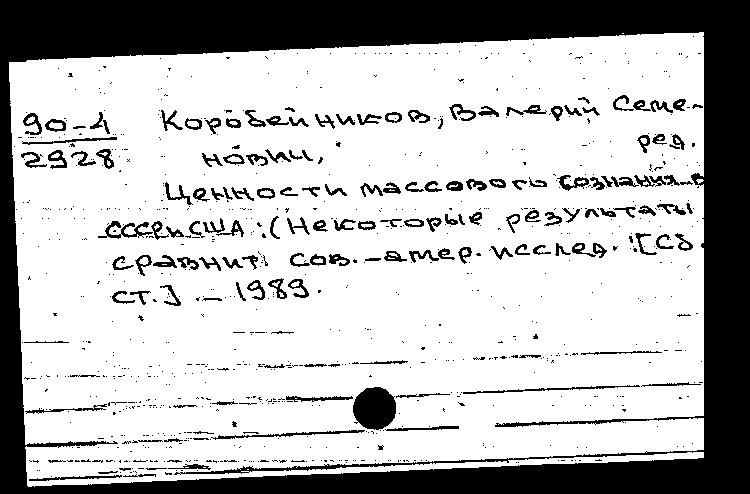 90-4 Коробейников, Валерий Семе-
2928 нович, ред.
Ценности массового сознания в
СССР и США : (Некоторые результаты
сравнит. сов.-амер. исслед. : [Сб.
ст.] — 1989.